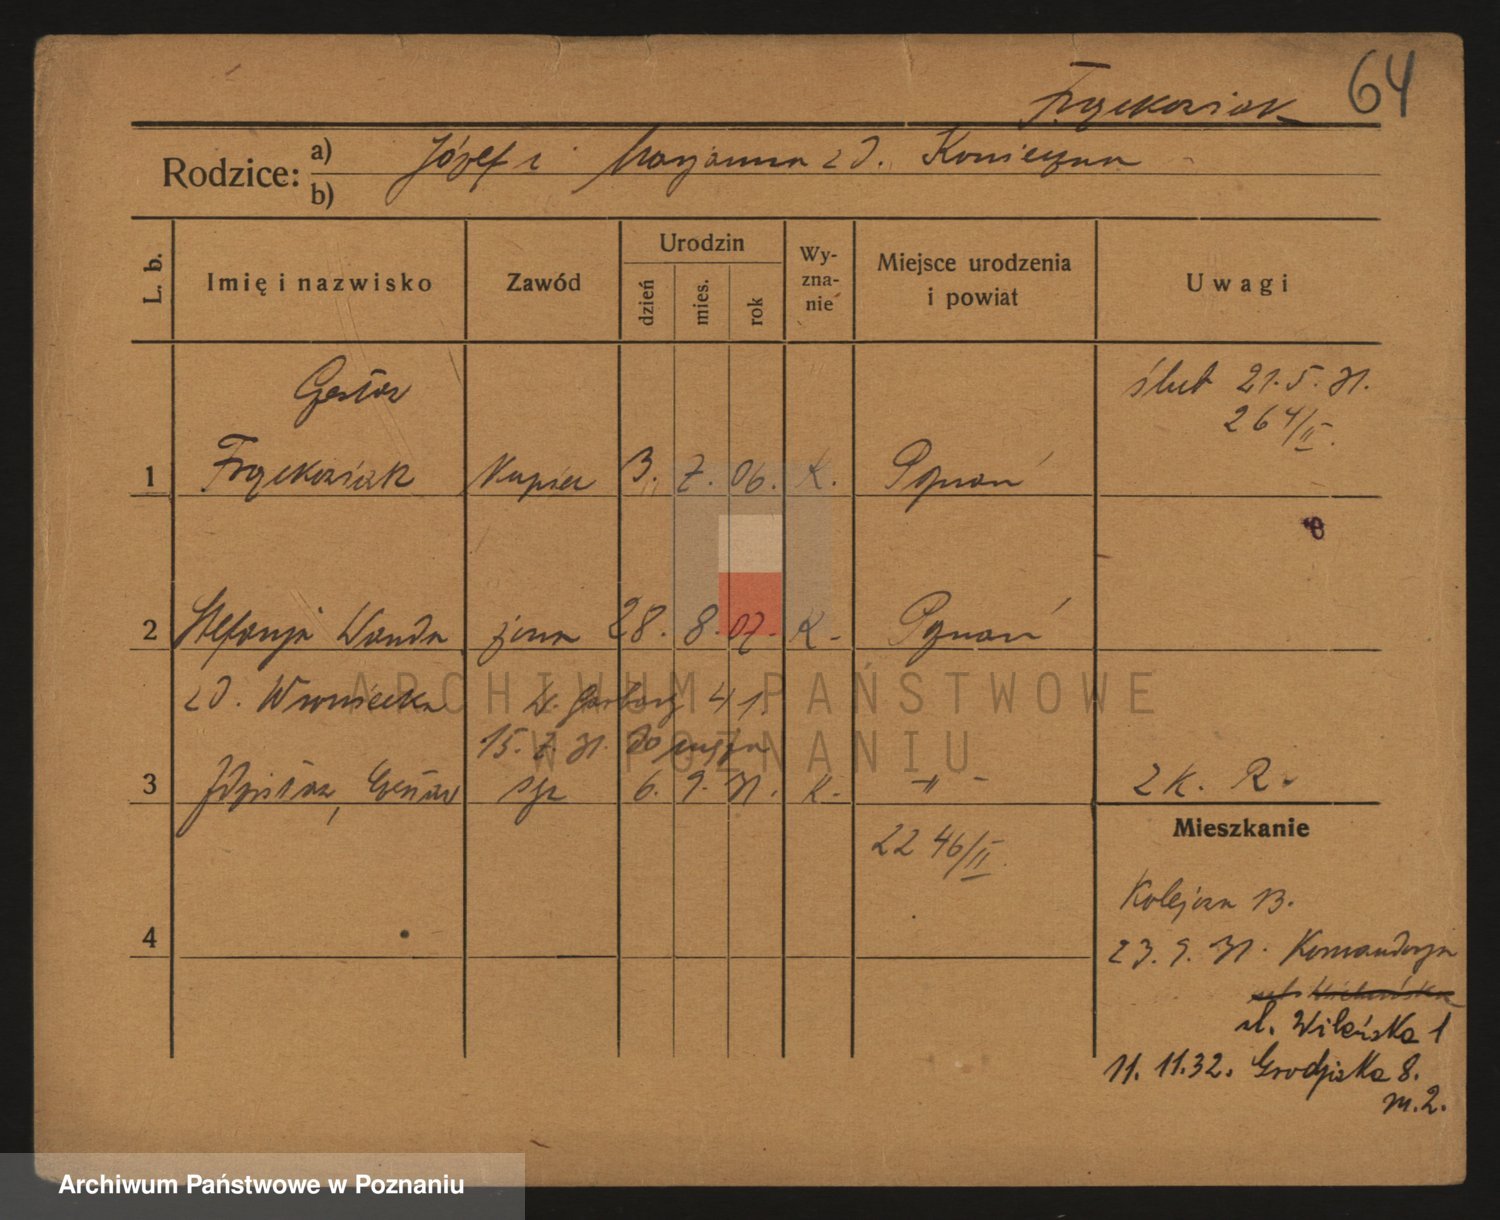 64
Frąckowiak
Rodzice: a) Józef i Marjanna zd. Konieczna
b)
L. b.
Imię i nazwisko
Zawód
Urodzin
dzień
mies.
rok
Wy-
zna-
nie
Miejsce urodzenia
i powiat
Uwagi
ślub 21.5.31.
264/II.
1 Frąckowiak Kupiec 3. 7. 06. K. Poznań
2 Stefanja Wanda żona 28. 8. 07. K. Poznań
zd. Wroniecka W. Garbary 41.
15. 7. 31. do męża
3 Zdzisław, 6. 9. 31. K. -"-
2246/II.
2 K. R.
Mieszkanie
4
Kolejowa 13.
23. 9. 31. Komandorja
ul. Wileńska 1
11. 11.32. Grodziska 8.
m.2.
ARCHIWUM PAŃSTWOWE
W POZNANIU
Archiwum Państwowe w Poznaniu